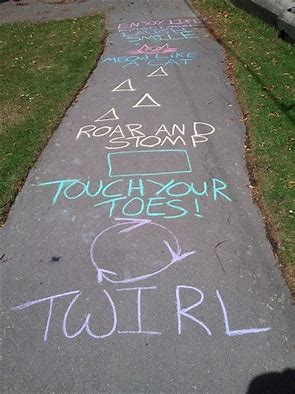 ENJOY LIFE
SMILE
MEOW LIKE
A CAT
ROAR AND
STOMP
TOUCH YOUR
TOES!
TWIRL